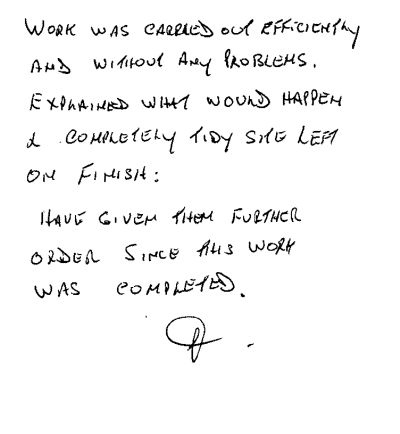 WORK WAS CARRIED OUT EFFICIENTLY
AND WITHOUT ANY PROBLEMS.
EXPLAINED WHAT WOULD HAPPEN
& COMPLETELY TIDY SITE LEFT
ON FINISH:
HAVE GIVEN THEM FURTHER
ORDER SINCE THIS WORK
WAS COMPLETED.